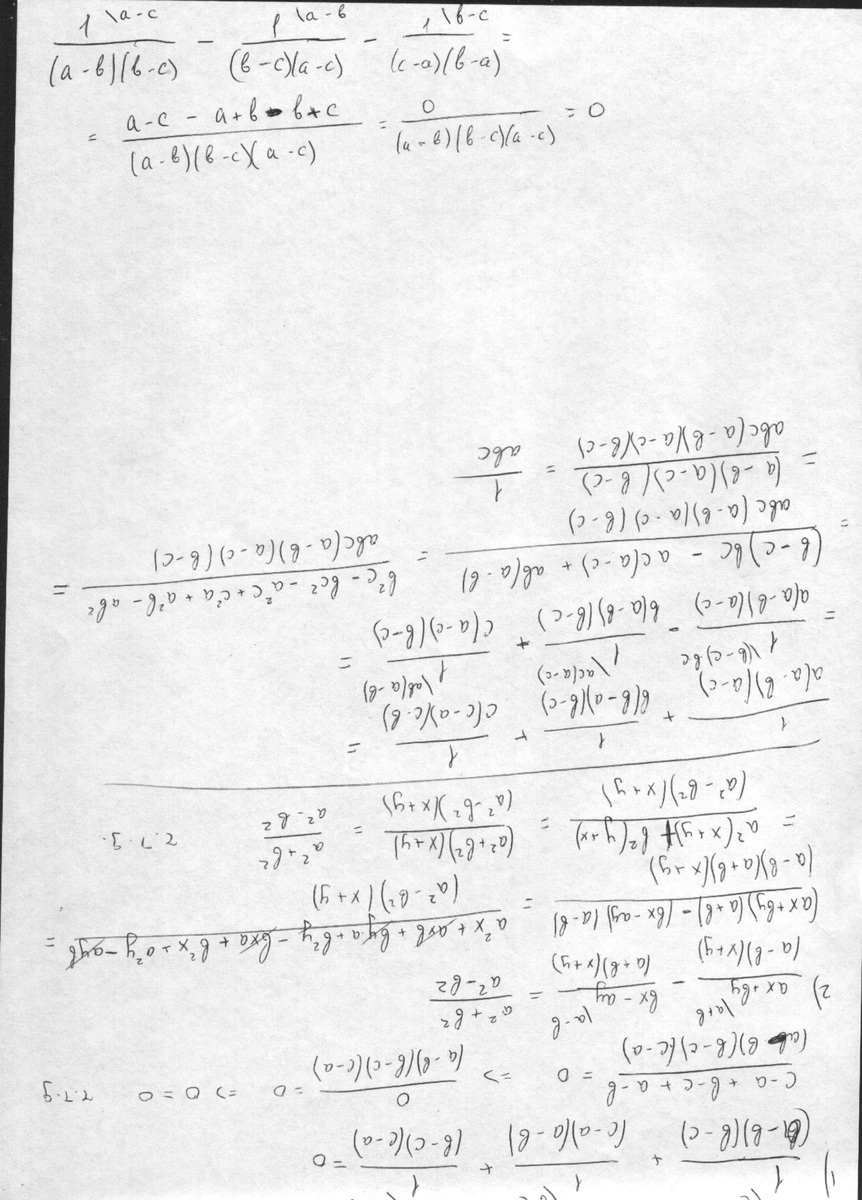 1 \a-c / (a-b)(b-c) - 1 \a-b / (b-c)(a-c) - 1 \b-c / (c-a)(b-a) =
= a-c - a+b - b+c / (a-b)(b-c)(a-c) = 0 / (a-b)(b-c)(a-c) = 0
1) 1 / (a-b)(b-c) + 1 / (c-a)(a-b) + 1 / (b-c)(c-a) = 0
c-a + b-c + a-b / (a-b)(b-c)(c-a) = 0 => 0 / (a-b)(b-c)(c-a) = 0 => 0 = 0 ч.т.д.
2) ax+by \a+b / (a-b)(x+y) - bx-ay \a-b / (a+b)(x+y) = a²+b² / a²-b²
(ax+by)(a+b)-(bx-ay)(a-b) / (a-b)(a+b)(x+y) = a²x + axb + bya + b²y - bxa + b²x + a²y - ayb / (a²-b²)(x+y) =
= a²(x+y)+b²(y+x) / (a²-b²)(x+y) = (a²+b²)(x+y) / (a²-b²)(x+y) = a²+b² / a²-b² ч.т.д.
1 / a(a-b)(a-c) + 1 / b(b-a)(b-c) + 1 / c(c-a)(c-b) =
= 1 \(b-c)bc / a(a-b)(a-c) - 1 \ac(a-c) / b(a-b)(b-c) + 1 \ab(a-b) / c(a-c)(b-c) =
= (b-c)bc - ac(a-c) + ab(a-b) / abc(a-b)(a-c)(b-c) = b²c - bc² - a²c + c²a + a²b - ab² / abc(a-b)(a-c)(b-c) =
= (a-b)(a-c)(b-c) / abc(a-b)(a-c)(b-c) = 1 / abc